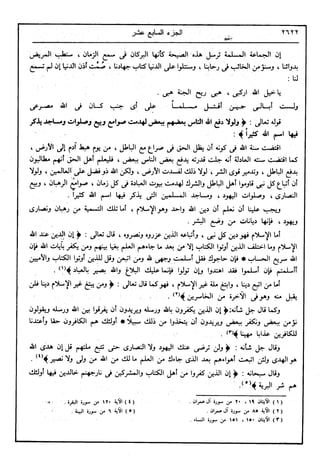 ٢٦٢٢ الجزء السابع عشر
إن الجماعة المسلمة ترسل هذه الصيحة كأنها البركان فى سمع الزمان ، سنطب المريض
بدوائنا ، وسنؤمن الخائف فى رحابنا ، وسنتلوا على الدنيا كتاب جهادنا ، صُمّت أذن الدنيا إن لم تسمع
لنا :
يا خيل الله اركبى ، هبى ريح الجنة هبى .
ولست أبالى حين أقتل مسلما على أى جنب كان فى الله مصرعى
قوله تعالى : ﴿ ولولا دفع الله الناس بعضهم ببعض لهدمت صوامع وبيع وصلوات ومساجد يذكر
فيها اسم الله كثيراً ﴾ :
اقتضت سنة الله فى كونه أن يظل الحق فى صراع مع الباطل ، من يوم هبط آدم إلى الأرض ،
كما اقتضت سنته العادلة أنه جلت قدرته يدفع بعض الناس ببعض ، فليعلم أهل الحق أنهم مطالبون
بدفع الباطل ، وتدمير قوى الشر ، ولولا ذلك لفسدت الأرض ، ولكن الله ذو فضل على العالمين ، ولولا
أن أتباع كل نبى قاوموا أهل الباطل والشرك لهدمت بيوت العبادة فى كل زمان ، صوامع الرهبان ، وبيع
النصارى ، وصلوات اليهود ، ومساجد المسلمين التى يذكر فيها اسم الله كثيراً .
ويجب علينا أن نعلم أن دين الله واحد وهو الإسلام ، أما تلك التسمية من رهبان ونصارى
ويهود ، فإنها ديانات من وضع البشر .
أما الإسلام فهو دين كل نبى ، وأتباعه الذين عزروه ونصروه ، قال تعالى : ﴿ إن الدين عند الله
الإسلام وما اختلف الذين أوتوا الكتاب إلا من بعد ما جاءهم العلم بغيا بينهم ومن يكفر بآيات الله فإن
الله سريع الحساب * فإن حاجوك فقل أسلمت وجهى لله ومن اتبعن وقل للذين أوتوا الكتاب والأميين
أأسلمتم فإن أسلموا فقد اهتدوا وإن تولوا فإنما عليك البلاغ والله بصير بالعباد ﴾(١) .
أما من اتبع دينا ، وابتغ ملة غير الإسلام ، فهو كما قال تعالى : ﴿ ومن يبتغ غير الإسلام دينا فلن
يقبل منه وهو فى الآخرة من الخاسرين ﴾(٢) .
وكما قال جل شأنه : ﴿ إن الذين يكفرون بالله ورسله ويريدون أن يفرقوا بين الله ورسله ويقولون
نؤمن ببعض ونكفر ببعض ويريدون أن يتخذوا بين ذلك سبيلا * أولئك هم الكافرون حقا وأعتدنا
للكافرين عذابا مهينا ﴾(٣) .
وقال جل شأنه : ﴿ ولن ترضى عنك اليهود ولا النصارى حتى تتبع ملتهم قل إن هدى الله
هو الهدى ولئن اتبعت أهواءهم بعد الذى جاءك من العلم ما لك من الله من ولى ولا نصير ﴾(٤) .
وقال سبحانه : ﴿ إن الذين كفروا من أهل الكتاب والمشركين فى نار جهنم خالدين فيها أولئك
هم شر البرية ﴾(٥) .
(١) الآيتان ١٩ ، ٢٠ من سورة آل عمران .
(٢) الآية ٨٥ من سورة آل عمران .
(٣) الآيتان ١٥٠ ، ١٥١ من سورة النساء .
(٤) الآية ١٢٠ من سورة البقرة .
(٥) الآية ٦ من سورة البينة .